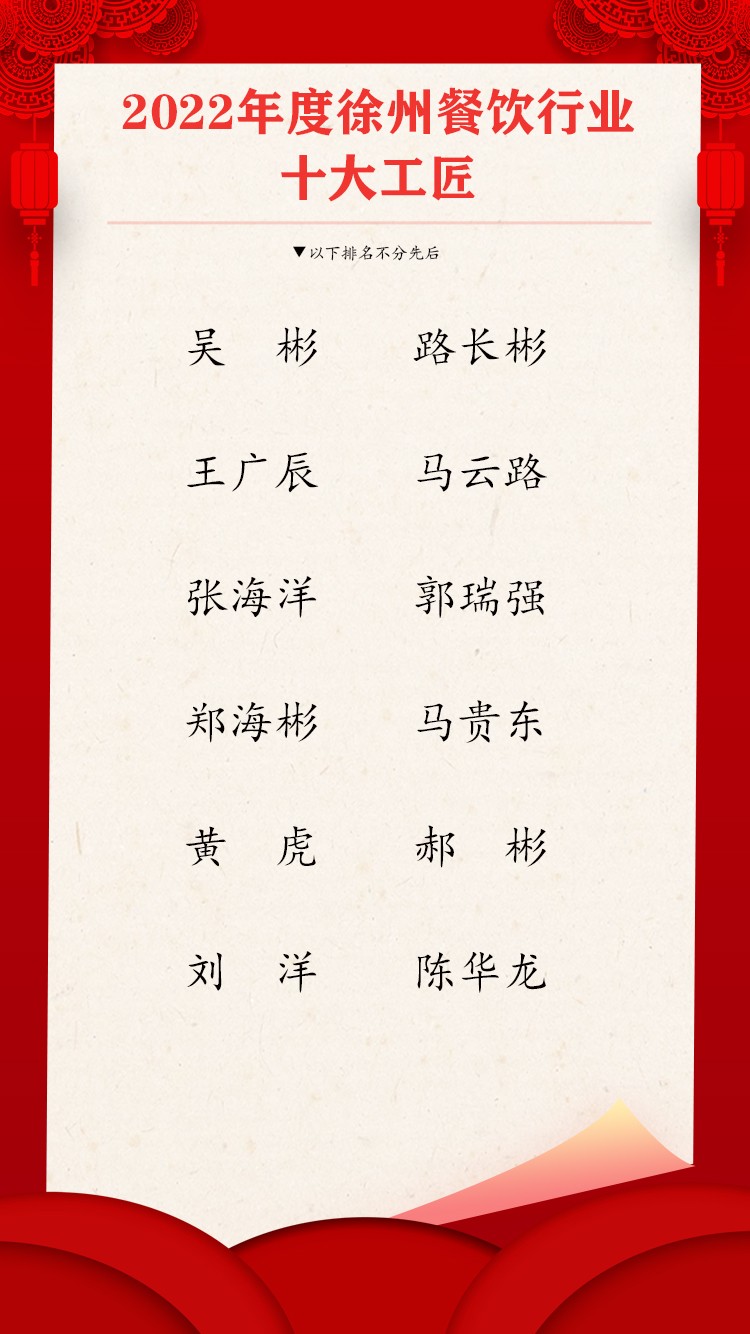 2022年度徐州餐饮行业
十大工匠
▼以下排名不分先后
吴　彬　　路长彬
王广辰　　马云路
张海洋　　郭瑞强
郑海彬　　马贵东
黄　虎　　郝　彬
刘　洋　　陈华龙